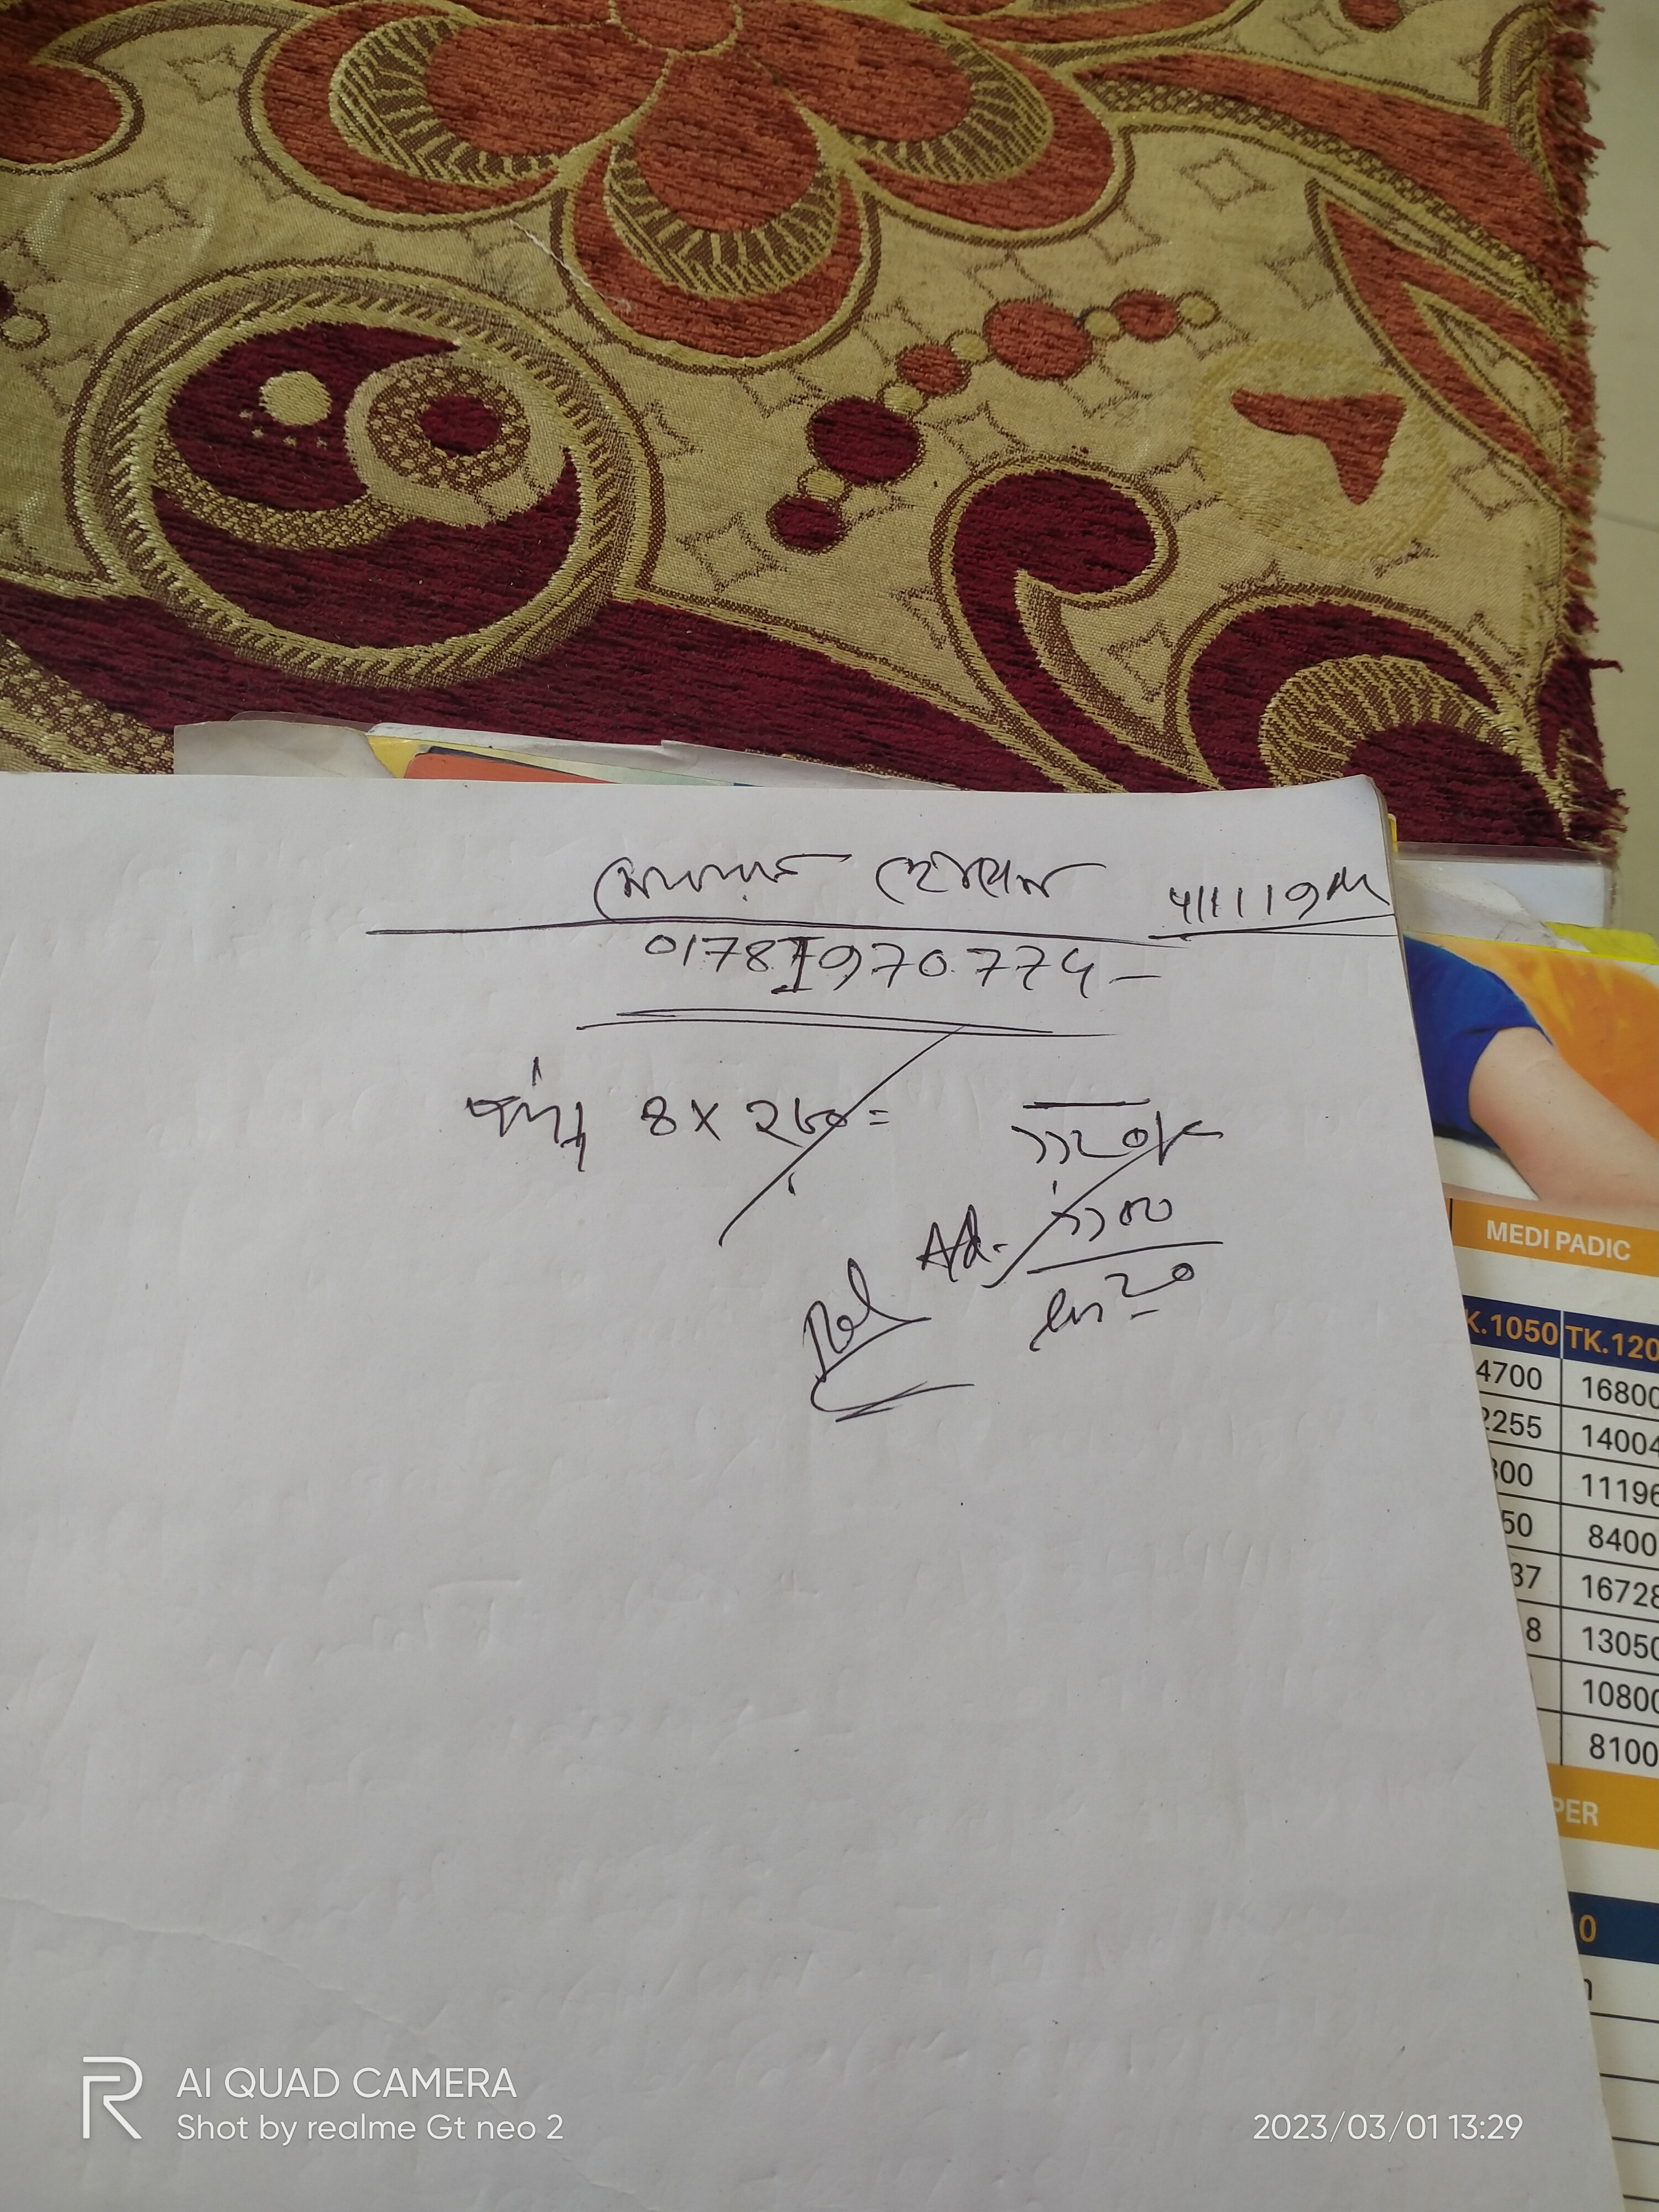 হোসেন
01781970774
৪ X ২৮০ =
১১২০
Ad. ১১০০
২০
MEDI PADIC
K.1050 TK.120
4700 16800
2255 14004
300 11196
50 8400
37 16728
8 13050
10800
8100
PER
0
AI QUAD CAMERA
Shot by realme Gt neo 2
2023/03/01 13:29